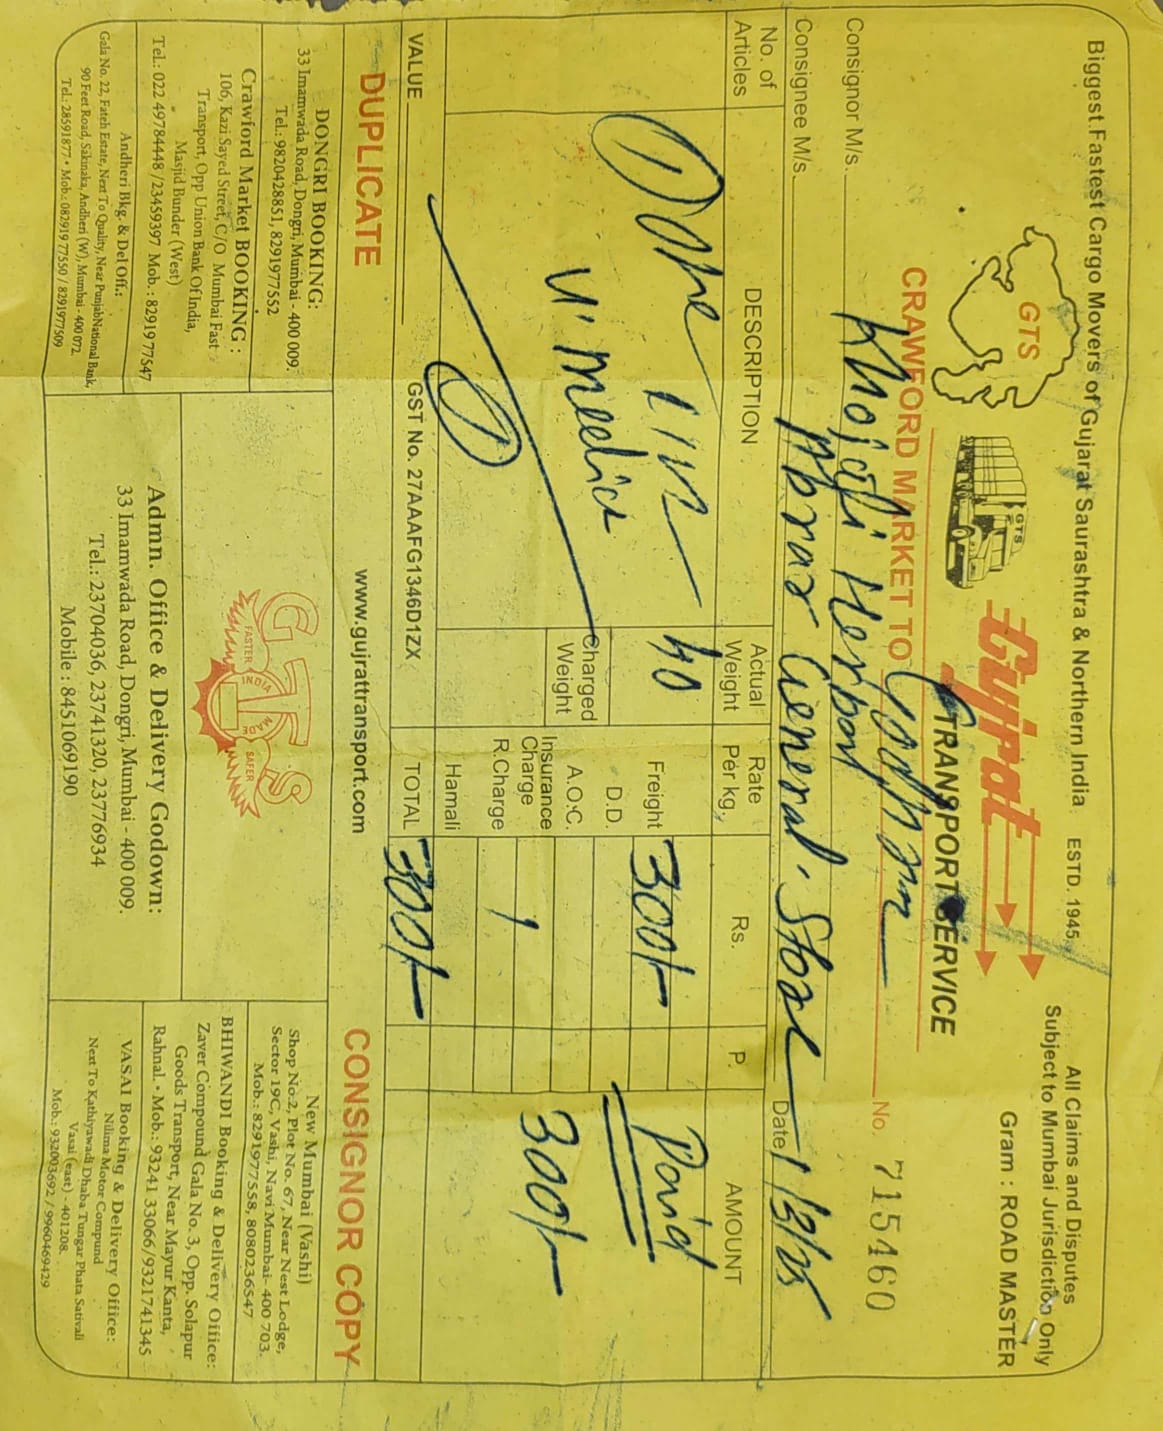 Biggest Fastest Cargo Movers of Gujarat Saurashtra & Northern India ESTD. 1945
All Claims and Disputes
Subject to Mumbai Jurisdiction Only
Gram : ROAD MASTER
GTS
GTS
Gujrat
TRANSPORT SERVICE
CRAWFORD MARKET TO
No. 715460
Consignor M/s. Khojati Herbal
Consignee M/s. Abrar General Store Date
No. of Articles
DESCRIPTION
Actual Weight
Rate Per kg.
Rs.
P.
AMOUNT
① One
40
Freight 300/-
Paid
D.D.
U. Medics
Charged Weight
A.O.C.
Insurance Charge
300/-
R.Charge
①
Hamali
VALUE
GST No. 27AAAFG1346D1ZX
TOTAL 300/-
DUPLICATE
www.gujrattransport.com
CONSIGNOR COPY
DONGRI BOOKING:
33 Imamwada Road, Dongri, Mumbai - 400 009.
Tel.: 9820428851, 8291977552
Crawford Market BOOKING :
106, Kazi Sayed Street, C/O Mumbai Fast
Transport, Opp Union Bank Of India,
Masjid Bunder (West)
Tel.: 022 49784448 /23459397 Mob. : 82919 77547
Andheri Bkg. & Del Off.:
Gala No. 22, Fateh Estate, Next To Quality, Near PunjabNational Bank,
90 Feet Road, Sakinaka, Andheri (W), Mumbai - 400 072.
Tel.: 28591877 • Mob.: 082919 77550 / 8291977509
GTS
FASTER
INDIA
MADE
SAFER
Admn. Office & Delivery Godown:
33 Imamwada Road, Dongri, Mumbai - 400 009.
Tel.: 23704036, 23741320, 23776934
Mobile : 8451069190
New Mumbai (Vashi)
Shop No.2, Plot No. 67, Near Nest Lodge,
Sector 19C, Vashi, Navi Mumbai- 400 703.
Mob.: 8291977558, 8080236547
BHIWANDI Booking & Delivery Office:
Zaver Compound Gala No. 3, Opp. Solapur
Goods Transport, Near Mayur Kanta,
Rahnal. • Mob.: 93241 33066/9321741345
VASAI Booking & Delivery Office:
Nilima Motor Compund
Next To Kathiyawadi Dhaba Tungar Phata Sativali
Vasai (east) - 401208.
Mob.: 932003692 / 9960469429